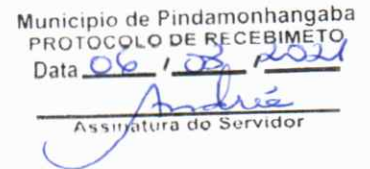 Municipio de Pindamonhangaba
PROTOCOLO DE RECEBIMETO
Data 06 / 08 / 2021
Andréa
Assinatura do Servidor